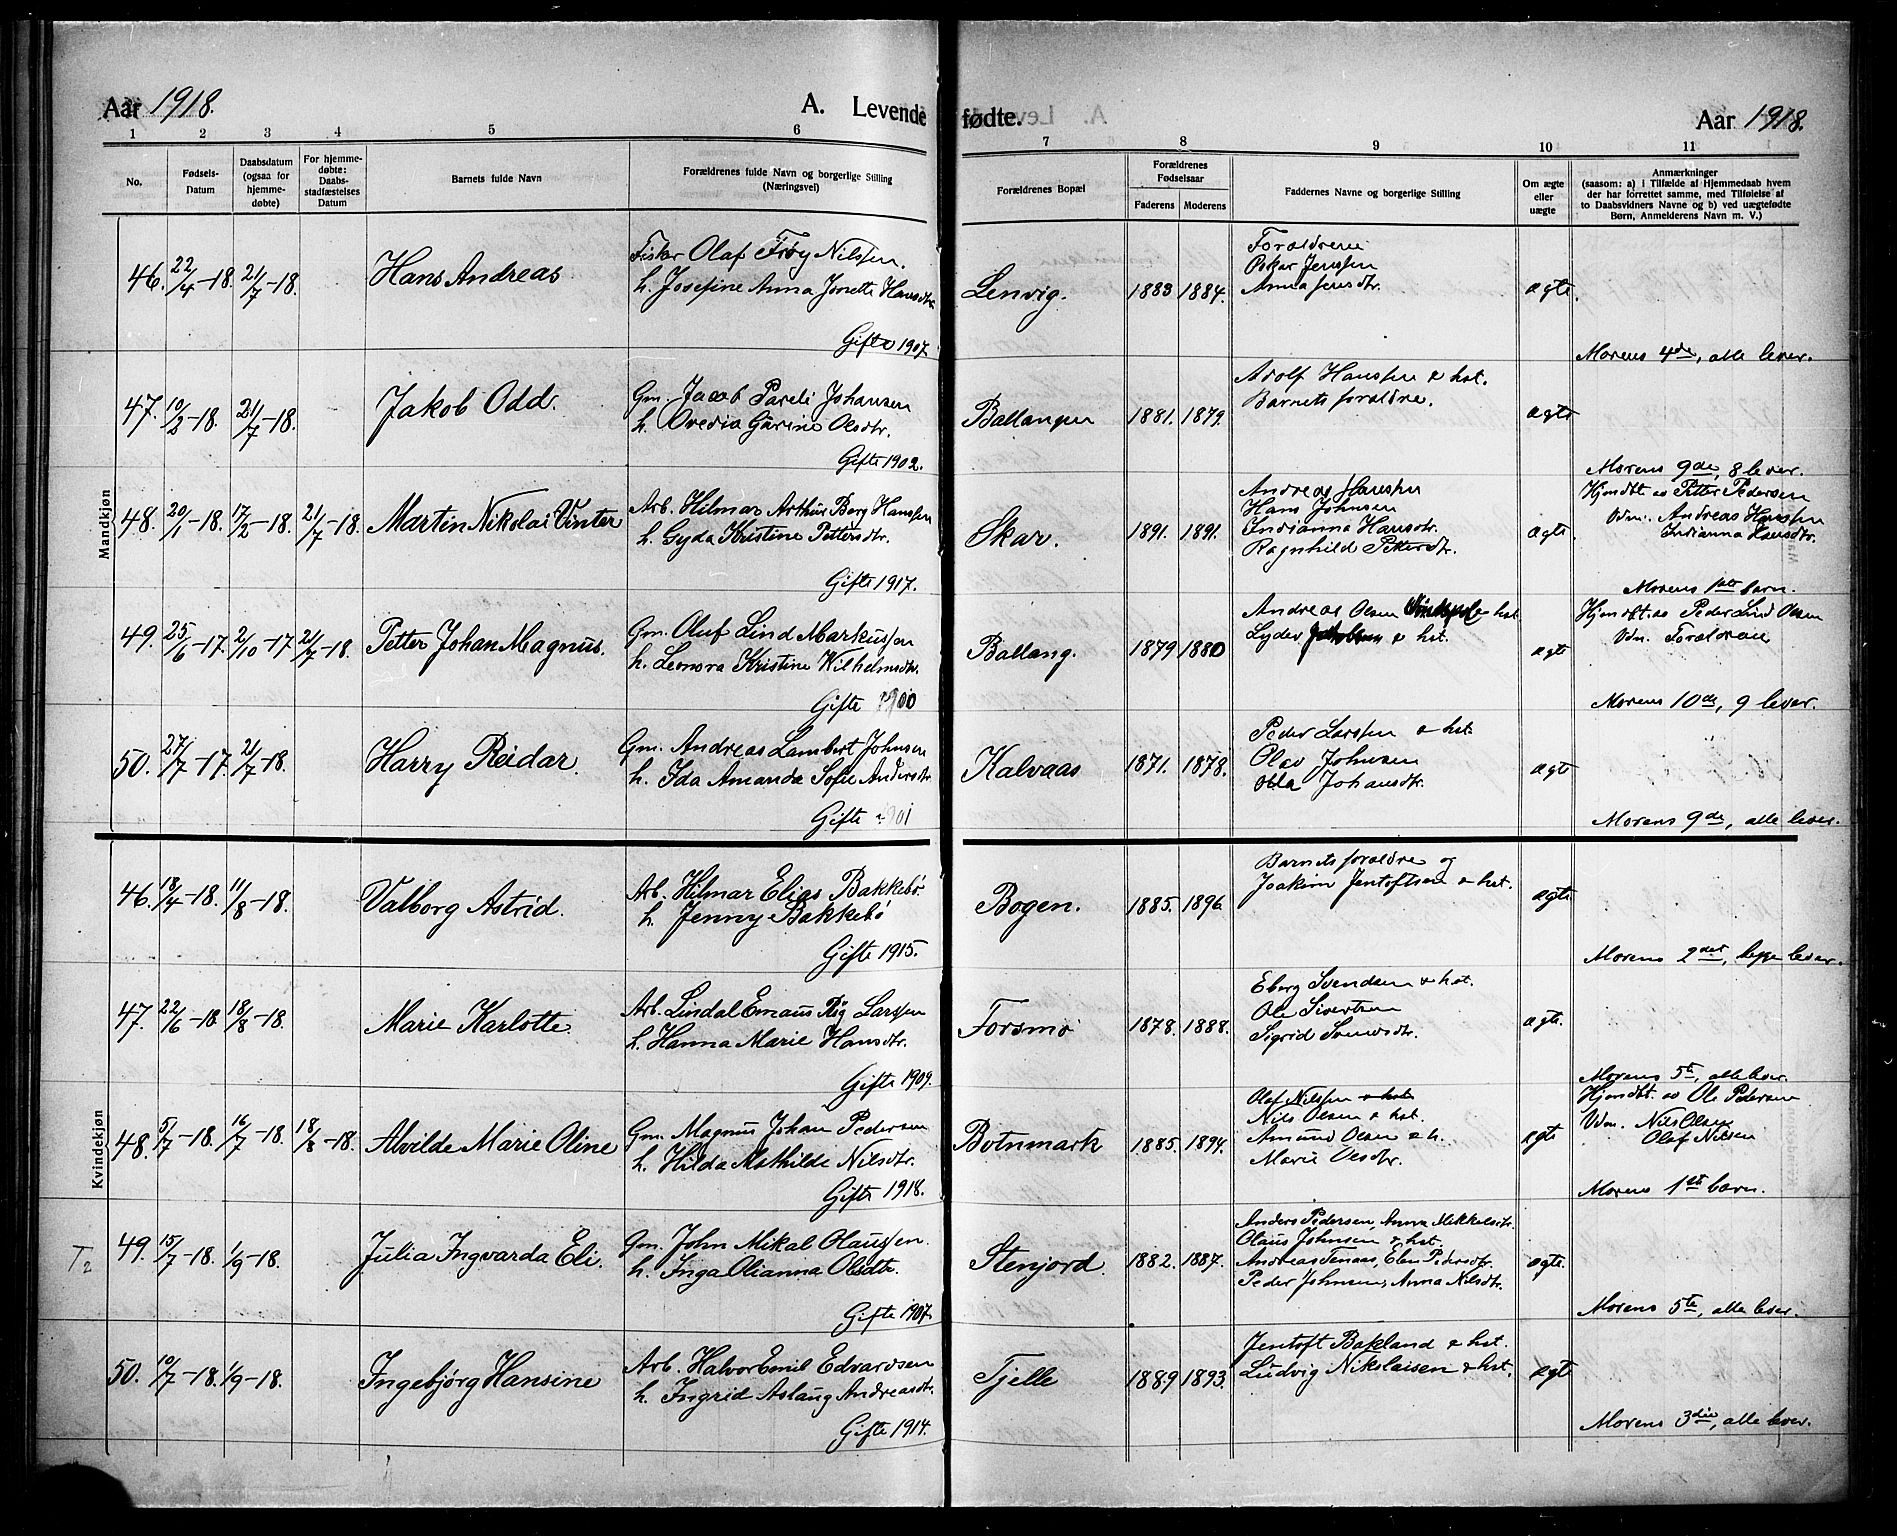 Aar 1918.
A. Levende fødte.
Aar 1918.
1 2 3 4 5 6 7 8 9 10 11
No.
Fødsels-
Datum
Daabsdatum
(ogsaa for
hjemme-
døbte)
For hjemme-
døbte:
Daabs-
stadfæstelses
Datum
Barnets fulde Navn
Forældrenes fulde Navn og borgerlige Stilling
(Næringsvei)
Forældrenes Bopæl
Forældrenes
Fødselsaar
Faderens Moderens
Faddernes Navne og borgerlige Stilling
Om ægte
eller
uægte
Anmærkninger
(saasom: a) i Tilfælde af Hjemmedaab hvem
der har forrettet samme, med Tilføielse af
to Daabsvidners Navne og b) ved uægtefødte
Børn, Anmelderens Navn m. V.)
Mandkjøn
46. 22/4-18. 21/7-18. Hans Andreas
Fisker Olaf Frøy Nilssen.
h. Josefine Anna Jonette Hansdtr.
Gifte 1907.
Lenvig. 1883 1884.
Forældrene
Oskar Jenssen
Anna Jensdtr.
ægte.
Morens 4de, alle lever.
47. 10/2-18. 21/7-18. Jakob Odd.
Gm. Jacob Pareli Johansen
h. Ovedia Garine Olsdtr.
Gifte 1902.
Ballangen 1881. 1879.
Adolf Hanssen & hst.
Barnets forældre.
ægte
Morens 9de, 8 lever.
48. 20/1-18. 17/2-18. 21/7-18. Martin Nikolai Vinter
Arb. Hilmar Arthur Berg Hanssen
h. Gyda Kristine Pettersdtr.
Gifte 1917.
Skar. 1891. 1891.
Andreas Hanssen
Hans Johnsen
Indianna Hansdtr.
Ragnhild Petterdtr.
ægte.
Hjemdbt av Petter Pedersen
Vdn. Andreas Hanssen
Indianna Hansdtr.
Morens 1ste barn.
49. 25/6-17. 2/10-17 21/7-18. Petter Johan Magnus.
Gm. Oluf Lind Markussen
h. Leonora Kristine Wilhelmsdtr.
Gifte 1900
Ballang. 1879 1880
Andreas Olsen & hst
Lyder & hst.
ægte
Hjemdbt. av Peder Lind Olsen
Vdn. Forældrene
Morens 10de, 9 lever.
50. 27/7-17. 21/7-18. Harry Reidar.
Gm. Andreas Lambert Johnsen
h. Ida Amanda Sofie Andersdtr
Gifte 1901
Kalvaas 1871. 1878.
Peder Larssen & hst.
Olav Johnsen
Olla Johansdtr.
ægte
Morens 9de, alle lever.
Kvindekjøn
46. 18/4-18. 11/8-18. Valborg Astrid.
Arb. Hilmar Elias Bakkebø
h. Jenny Bakkebø
Gifte 1915.
Bogen. 1885. 1896.
Barnets forældre og
Joakim Jentoftsen & hst.
ægte
Morens 2det, begge lever.
47. 22/6-18. 18/8-18. Marie Karlotte
Arb. Lindal Emaus Røg Larssen
h. Hanna Marie Hansdtr.
Gifte 1909.
Forsmo 1878. 1888.
Eberg Svendsen & hst.
Ole Sivertsen
Sigrid Svendsdtr.
ægte.
Morens 5te, alle lever.
48. 5/7-18. 16/7-18. 18/8-18. Alvilde Marie Oline
Gm. Magnus Johan Pedersen
h. Hilda Mathilde Nilsdtr.
Gifte 1918.
Botnmark 1885. 1894.
Olaf Nilssen & hst
Nils Olsen & hst.
Amund Olsen & h.
Marie Olsdtr.
ægte
Hjemdbt. av Ole Pedersen
Vdn. Nils Olsen
Olaf Nilsen
Morens 1ste barn.
T2
49. 15/7-18. 1/9-18. Julia Ingvarda Eli.
Gm. John Mikal Olaussen.
h. Inga Olianna Olsdtr.
Gifte 1907.
Stenjord. 1882. 1887.
Anders Pedersen, Anna Mikkelsdtr.
Olaus Johnsen & hst.
Andreas Tenaas, Elen Pedersdtr.
Peder Johnsen, Anna Nilsdtr.
ægte.
Morens 5te, alle lever.
50. 10/7-18. 1/9-18. Ingebjørg Hansine
Arb. Halvor Emil Edvardsen
h. Ingrid Aslaug Andreasdtr.
Gifte 1914.
Tjelle 1889 1893.
Jentoft Bakland & hst.
Ludvig Nikolaisen & hst.
ægte
Morens 3die, alle lever.